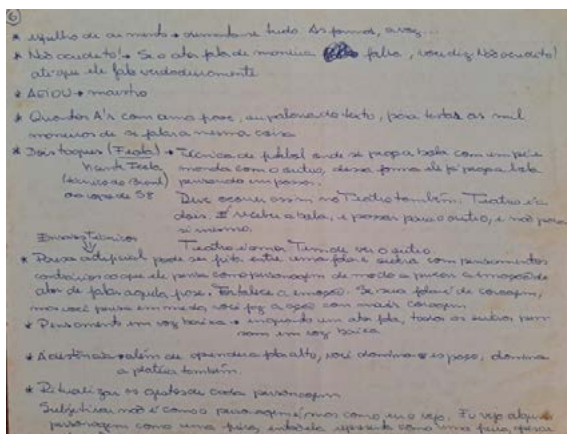 6
* espelho de aumento → aumenta-se tudo. As formas, a voz...
* Não acredito! → Se o ator fala de maneira falsa, você diz: Não acredito!
até que ele fale verdadeiramente
* AEIOU → maestro
* Quantos A's com uma frase, ou palavra do texto, para tentar as mil
maneiras de se falar a mesma coisa
* Dois toques (Feola) → Técnica de futebol onde se pega a bola com um pé e
Vicente Feola
manda com o outro, dessa forma ele já pega a bola
(técnico do Brasil)
pensando em passar.
da copa de 58
Deve ocorrer assim no Teatro também. Teatro é a
dois. É receber a bola, e passar para o outro, e não para
si mesmo.
Ensaios Técnicos
Teatro é soma. Tem de ver o outro.
* Pausa artificial pode ser feita entre uma fala e outra com pensamentos
contrários ao que ele pensa como personagem de modo a puxar a emoção do
ator de falar aquela frase. Fortalece a emoção. Se sua fala é de coragem,
mas você pensa em medo, você faz a ação com mais coragem
* Pensamento em voz baixa → enquanto um ator fala, todos os outros pen
sam em voz baixa
* A distância → além de aprender a falar alto, você domina o espaço, domina
a platéia também.
* Ritualizar os gestos de cada personagem
Subjetivar não é como o personagem é, mas como eu o vejo. Eu vejo algum
personagem como uma fera, então ele representa como uma fera, apesar